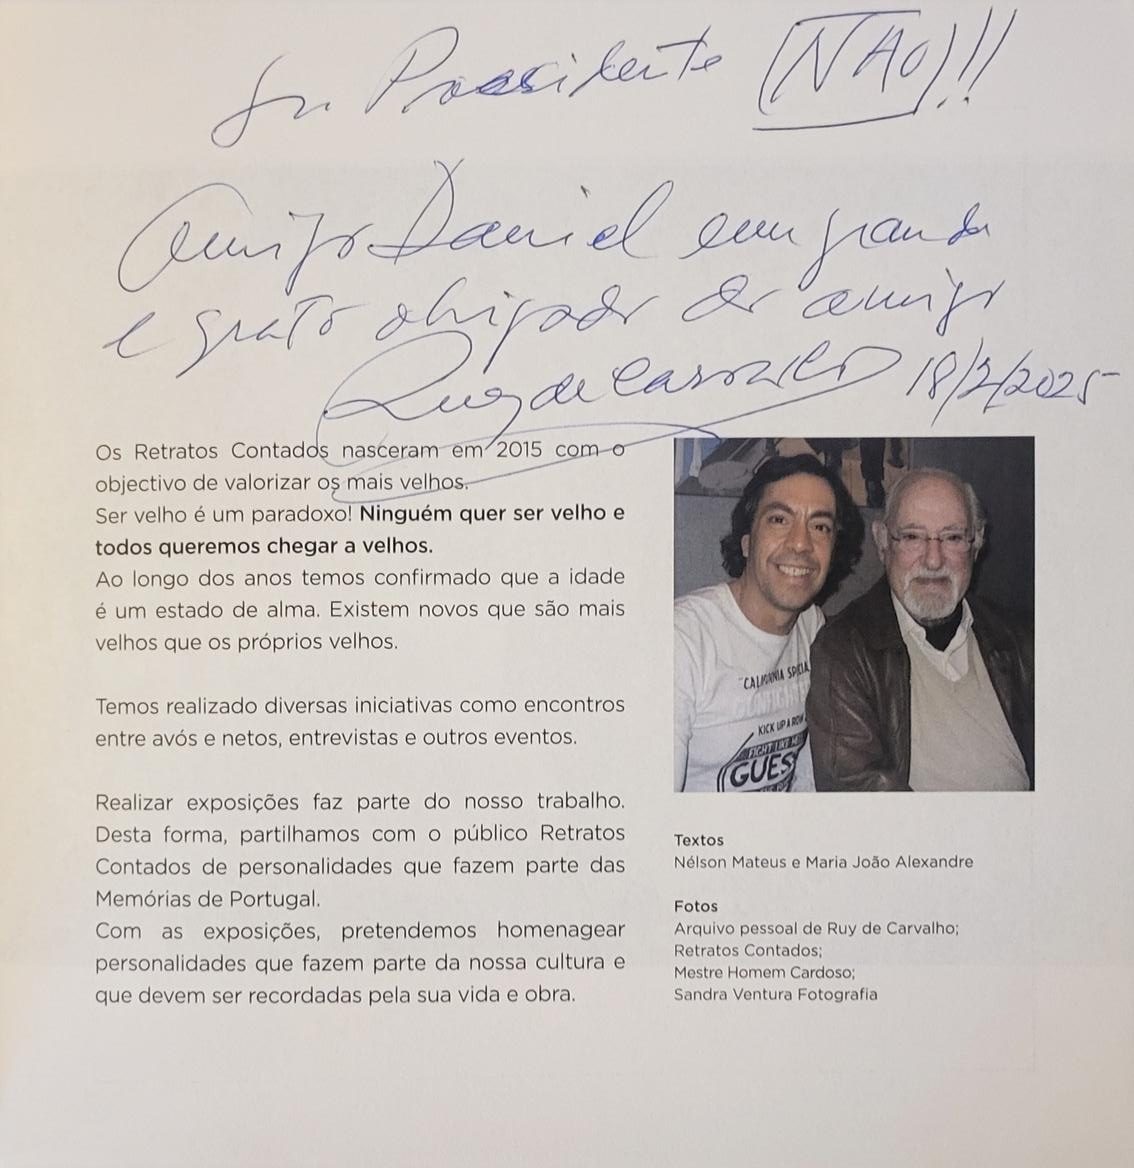 Sr. Presidente (NÃO)!!
Amigo Daniel um grande
e grato obrigado do amigo
Ruy de Carvalho 18/2/2025
Os Retratos Contados nasceram em 2015 com o
objectivo de valorizar os mais velhos.
Ser velho é um paradoxo! Ninguém quer ser velho e
todos queremos chegar a velhos.
Ao longo dos anos temos confirmado que a idade
é um estado de alma. Existem novos que são mais
velhos que os próprios velhos.
Temos realizado diversas iniciativas como encontros
entre avós e netos, entrevistas e outros eventos.
Realizar exposições faz parte do nosso trabalho.
Desta forma, partilhamos com o público Retratos
Contados de personalidades que fazem parte das
Memórias de Portugal.
Com as exposições, pretendemos homenagear
personalidades que fazem parte da nossa cultura e
que devem ser recordadas pela sua vida e obra.
"CALIFORNIA SPECIA
KICK UP A ROW
FIGHT LIKE
GUES
Textos
Nélson Mateus e Maria João Alexandre
Fotos
Arquivo pessoal de Ruy de Carvalho;
Retratos Contados;
Mestre Homem Cardoso;
Sandra Ventura Fotografia